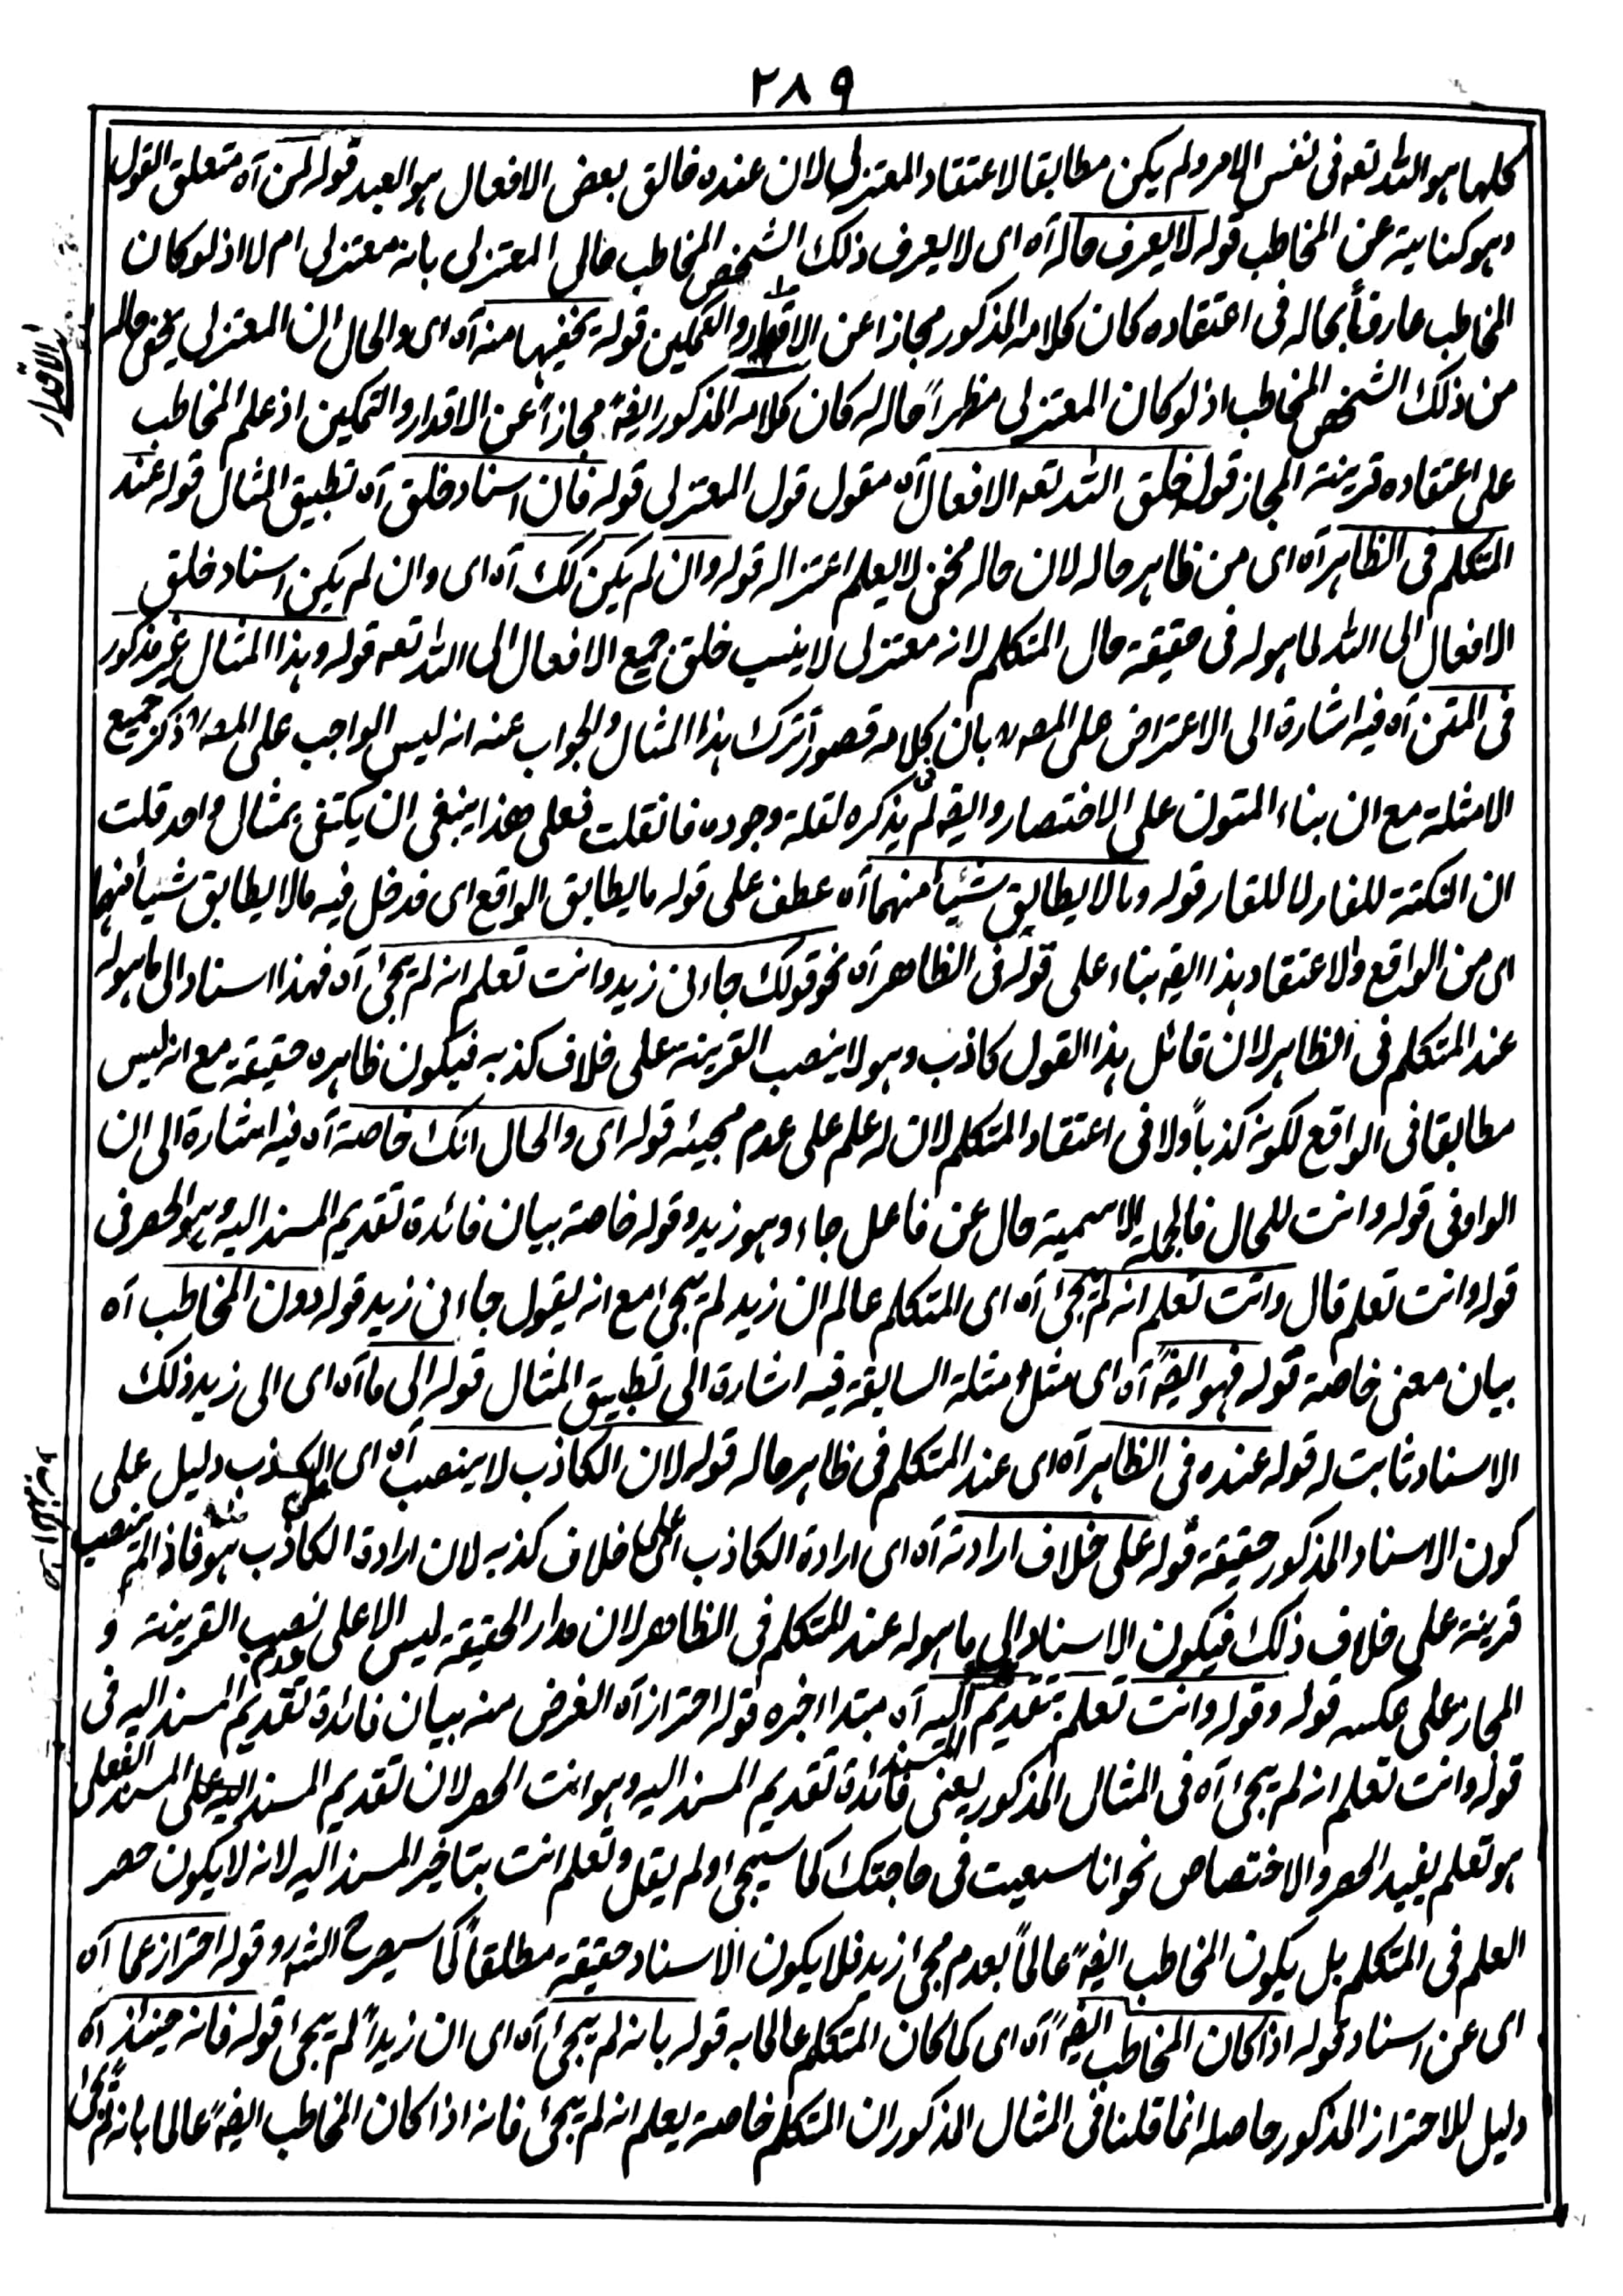 ٢٨٩
كلها هو الله تعه فى نفس الامر ولم يكن مطابقا لاعتقاد المعتزلى لان عنده خالق بعض الافعال هو العبد قوله لمن آه متعلق القول
وهو كناية عن المخاطب قوله لا يعرف حاله آه اى لا يعرف ذلك الشخص المخاطب حالى المعتزلى بانه معتزلى ام لا اذ لو كان
المخاطب عارفاً بحاله فى اعتقاده كان كلامه المذكور مجازا عن الاقدار والتمكين قوله يخفيها منه آه اى والحال ان المعتزلى يخفى حاله
من ذلك الشخص المخاطب اذ لو كان المعتزلى مظهراً حاله له كان كلامه المذكور ايضهً مجازاً عن الاقدار والتمكين اذ علم المخاطب
على اعتقاده قرينة المجاز قوله خلق الله تعه الافعال آه مقول قول المعتزلى قوله فان اسناد خلق آه تطبيق المثال قوله عند
المتكلم فى الظاهر آه اى من ظاهر حاله لان حاله مخفى لا يعلم اعتزاله قوله وان لم يكن كك آه اى وان لم يكن اسناد خلق
الافعال الى الله لما هو له فى حقيقة حال المتكلم لانه معتزلى لا ينسب خلق جميع الافعال الى الله تعه قوله وهذا المثال غير مذكور
فى المتن آه فيه اشارة الى الاعتراض على المصه بان كلامه قصور اترك هذا المثال والجواب عنه انه ليس الواجب على المصه ذكر جميع
الامثلة مع ان بناء المتون على الاختصار وايضه لم يذكره لقلة وجوده فانقلت فعلى هذا ينبغى ان يكتفى بمثال واحد قلت
ان النكتة للفار لا للقار قوله وما لا يطابق شيئاً منهما آه عطف على قوله ما يطابق الواقع اى فدخل فيه ما لا يطابق شيئا منهما
اى من الواقع والاعتقاد هذا ايضه بناء على قوله فى الظاهر آه نحو قولك جاءنى زيد وانت تعلم انه لم يجئ آه فهذا اسناد الى ما هو له
عند المتكلم فى الظاهر لان قائل هذا القول كاذب وهو لا ينصب القرينة على خلاف كذبه فيكون ظاهره حقيقة مع انه ليس
مطابقا فى الواقع لكونه كذباً ولا فى اعتقاد المتكلم لان له علم على عدم مجيئه قوله اى والحال انك خاصة آه فيه اشارة الى ان
الواو فى قوله وانت للحال فالجملة الاسمية حال عن فاعل جاء وهو زيد وقوله خاصة بيان فائدة تقديم المسند اليه وهو الحصر فى
قوله وانت تعلم قال وانت تعلم انه لم يجئ آه اى المتكلم عالم ان زيد لم يجئ مع انه يقول جاءنى زيد قوله دون المخاطب آه
بيان معنى خاصة قوله فهو ايضهً آه اى مثل امثلة السابقة فيه اشارة الى تطبيق المثال قوله الى ما آه اى الى زيد ذلك
الاسناد ثابت له قوله عنده فى الظاهر آه اى عند المتكلم فى ظاهر حاله قوله لان الكاذب لا ينصب آه اى الكذب دليل على
كون الاسناد المذكور حقيقة قوله على خلاف ارادته آه اى ارادة الكاذب اى على خلاف كذبه لان ارادة الكاذب هو فاذا لم ينصب
قرينة على خلاف ذلك فيكون الاسناد الى ما هو له عند المتكلم فى الظاهر لان مدار الحقيقة ليس الا على عدم نصب القرينة و
المجاز على عكسه قوله وقوله وانت تعلم بتقديم المسند اليه آه مبتدا اخبره قوله احتراز آه الغرض منه بيان فائدة تقديم المسند اليه فى
قوله وانت تعلم انه لم يجئ آه فى المثال المذكور يعنى فائدة تقديم المسند اليه وهو انت الحصر لان تقديم المسند اليه على المسند الفعلى
هو تعلم يفيد الحصر والاختصاص نحو انا سعيت فى حاجتك كما سيجئ ولم يقل وتعلم انت بتاخير المسند اليه لانه لا يكون حصر
العلم فى المتكلم بل يكون المخاطب ايضهً عالماً بعدم مجئ زيد فلا يكون الاسناد حقيقة مطلقاً كما سيصرح الشه وقوله احتراز عما آه
اى عن اسناد قوله اذا كان المخاطب ايضهً آه اى كما كان المتكلم عالما به قوله بانه لم يجئ آه اى ان زيداً لم يجئ قوله فانه حينئذ آه
دليل للاحتراز المذكور حاصله انما قلنا فى المثال المذكور ان المتكلم خاصة يعلم انه لم يجئ فانه اذا كان المخاطب ايضهً عالما بانه لم يجئ